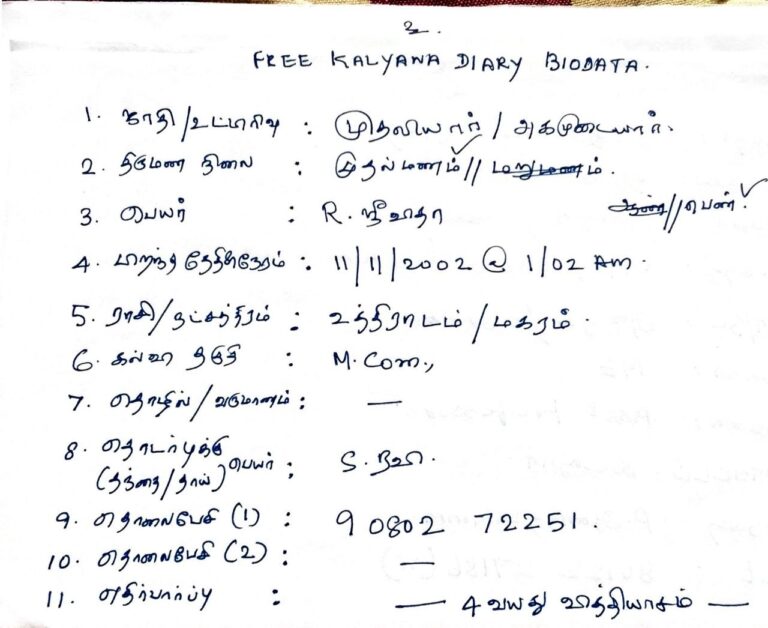 2.
FREE KALYANA DIARY BIODATA.
1. ஜாதி/உட்பிரிவு : முதலியார் / அகமுடையார்.
2. திருமண நிலை : முதல்மணம் // மறுமணம்.
3. பெயர் : R. ஸ்ரீஜாதா ஆண் // பெண்.
4. பிறந்த தேதி/நேரம் : 11/11/2002 @ 1/02 Am.
5. ராசி/நட்சத்திரம் : உத்திராடம் / மகரம்.
6. கல்வி தகுதி : M.Com.,
7. தொழில்/வருமானம் : —
8. தொடர்புக்கு
(தந்தை/தாய்) பெயர் : S. ரவி.
9. தொலைபேசி (1) : 90802 72251.
10. தொலைபேசி (2) : —
11. எதிர்பார்ப்பு : — 4 வயது வித்தியாசம் —